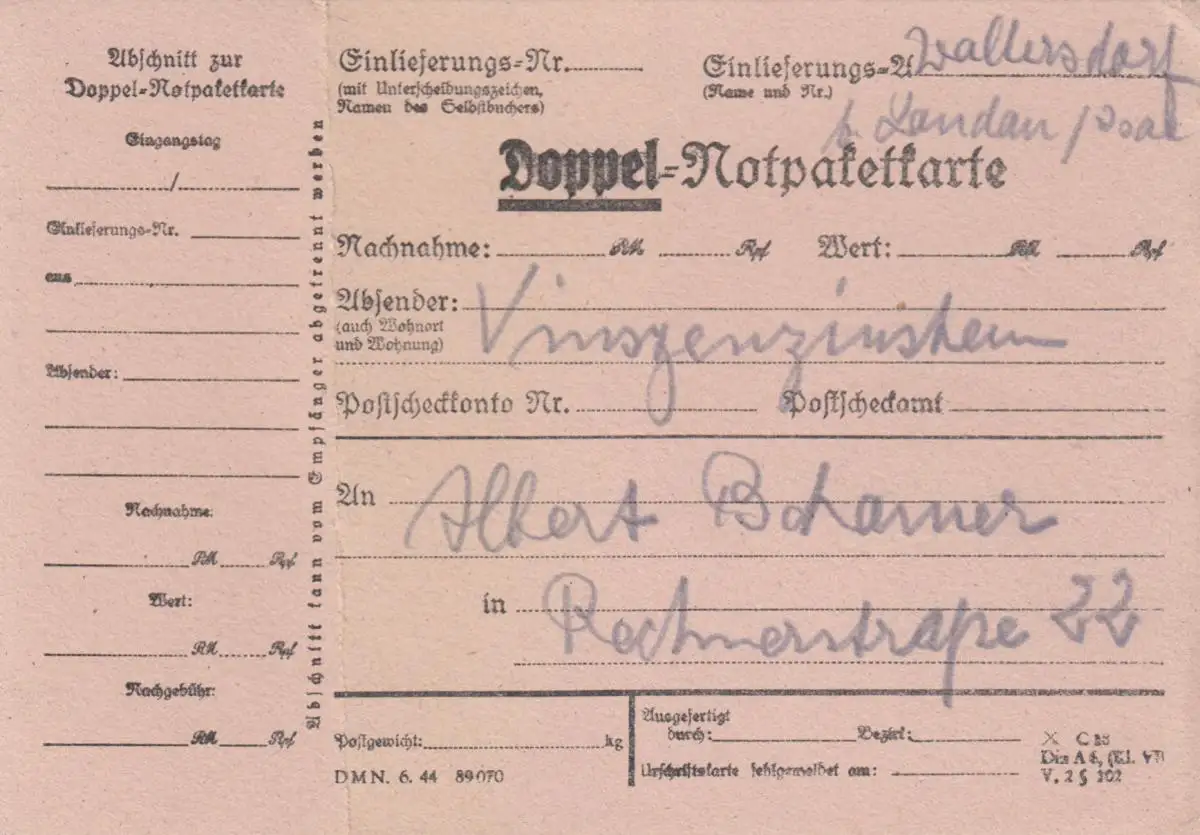 Abschnitt zur
Doppel-Notpaketkarte
Eingangstag
/
Einlieferungs-Nr.
aus
Absender:
Nachnahme:
RM Rpf
Wert:
RM Rpf
Nachgebühr:
RM Rpf
Abschnitt kann vom Empfänger abgetrennt werden
Einlieferungs-Nr.
(mit Unterscheidungszeichen,
Namen des Selbstbuchers)
Einlieferungs-A Wallersdorf
(Name und Nr.)
b. Landau / Isar
Doppel-Notpaketkarte
Nachnahme: RM Rpf Wert: RM Rpf
Absender:
(auch Wohnort
und Wohnung)
Postscheckkonto Nr. Postscheckamt
An Albert
in 22
Postgewicht: kg
DMN. 6. 44 89070
Ausgefertigt
durch: Bezirk:
Urschriftskarte fehlgemeldet am:
X C 28
Din A 6, (Kl. VI)
V. 2 § 202